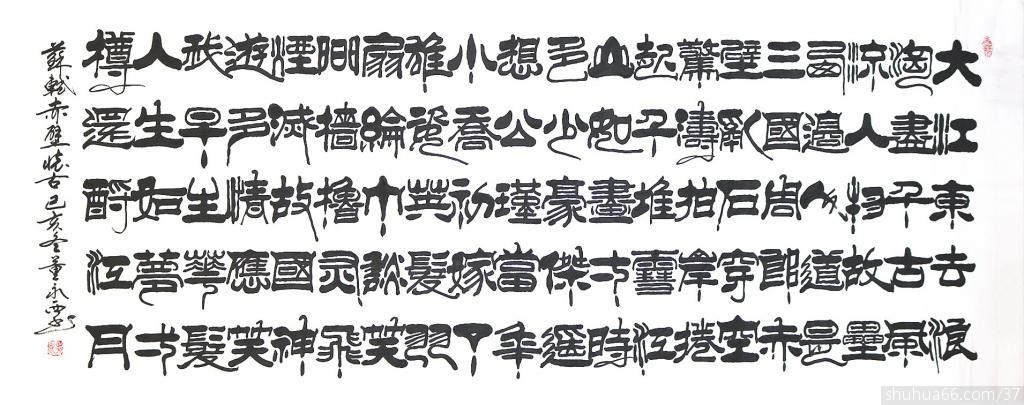 大江東去浪
淘盡千古風
流人物故壘
西邊人道是
三國周郎赤
壁亂石穿空
驚濤拍岸捲
起千堆雪江
山如畫一時
多少豪傑遙
想公瑾當年
小喬初嫁了
雄姿英髮羽
扇綸巾談笑
間檣櫓灰飛
煙滅故國神
遊多情應笑
我早生華髮
人生如夢一
樽還酹江月
蘇軾赤壁懷古己亥冬董永
shuhua66.com/37